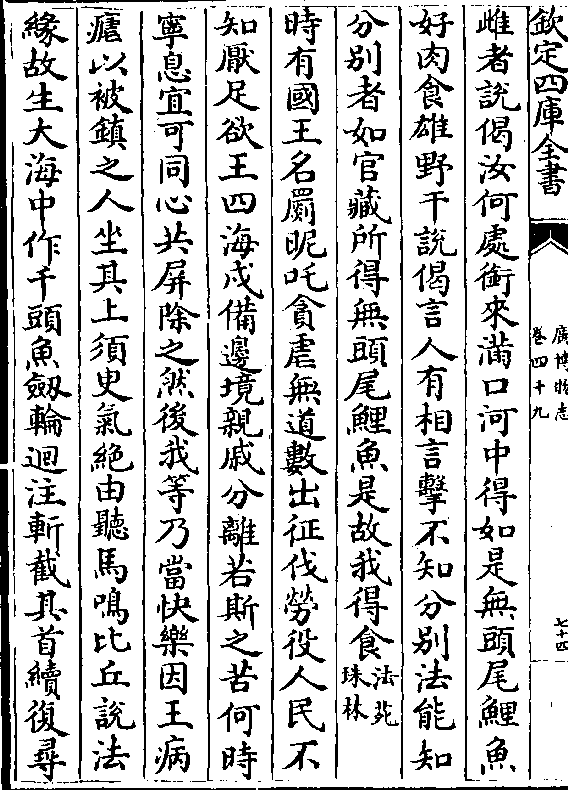 欽定四庫全書
廣博物志
卷四十九
七十四
雌者說偈汝何處銜來滿口河中得如是無頭尾鯉魚
好肉食雄野干說偈言人有相言擊不知分別法能知
分別者如官藏所得無頭尾鯉魚是故我得食法苑珠林
時有國王名罽昵吒貪虐無道數出征伐勞役人民不
知厭足欲王四海戍備邊境親戚分離若斯之苦何時
寧息宜可同心共屏除之然後我等乃當快樂因王病
瘧以被鎮之人坐其上須臾氣絕由聽馬鳴比丘說法
緣故生大海中作千頭魚劒輪迴注斬截其首續復尋